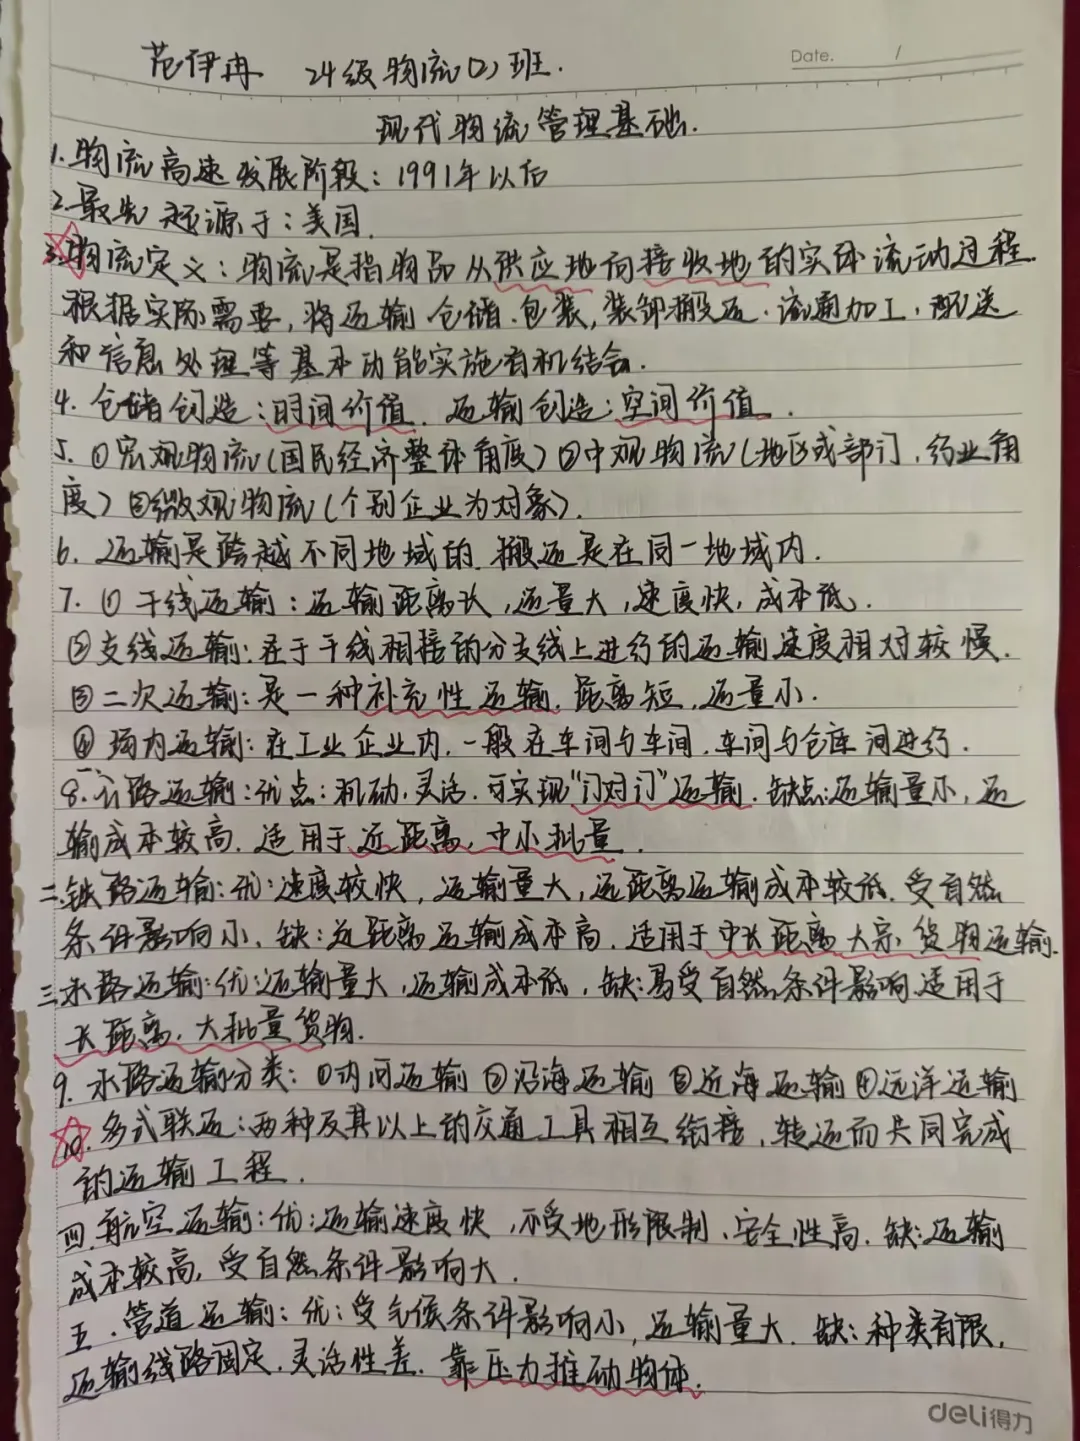 范伊冉 24级物流(2)班.
Date. /
现代物流管理基础.
1.物流高速发展阶段：1991年以后
2.最先起源于：美国.
3.物流定义：物流是指物品从供应地向接收地的实体流动过程.
根据实际需要,将运输.仓储.包装,装卸搬运.流通加工.配送
和信息处理等基本功能实施有机结合.
4.仓储创造：时间价值.运输创造：空间价值.
5.①宏观物流(国民经济整体角度)②中观物流(地区或部门.行业角
度)③微观物流(个别企业为对象).
6.运输是跨越不同地域的.搬运是在同一地域内.
7.①干线运输：运输距离长,运量大,速度快,成本低.
②支线运输:在于干线相接的分支线上进行的运输速度相对较慢.
③二次运输:是一种补充性运输.距离短.运量小.
④场内运输:在工业企业内.一般在车间与车间.车间与仓库间进行.
8.一公路运输:优点:机动,灵活.可实现"门对门"运输.缺点:运输量小,运
输成本较高.适用于近距离,中小批量.
二.铁路运输:优:速度较快,运输量大,远距离运输成本较低.受自然
条件影响小.缺:近距离运输成本高.适用于中长距离大宗货物运输.
三.水路运输:优:运输量大,运输成本低,缺:易受自然条件影响.适用于
长距离.大批量货物.
9.水路运输分类：①内河运输②沿海运输③近海运输④远洋运输
10.多式联运:两种及其以上的交通工具相互衔接,转运而共同完成
的运输工程.
四.航空运输:优:运输速度快,不受地形限制.安全性高.缺:运输
成本较高,受自然条件影响大.
五.管道运输：优：受气候条件影响小,运输量大.缺：种类有限,
运输线路固定.灵活性差.靠压力推动物体.
deli得力